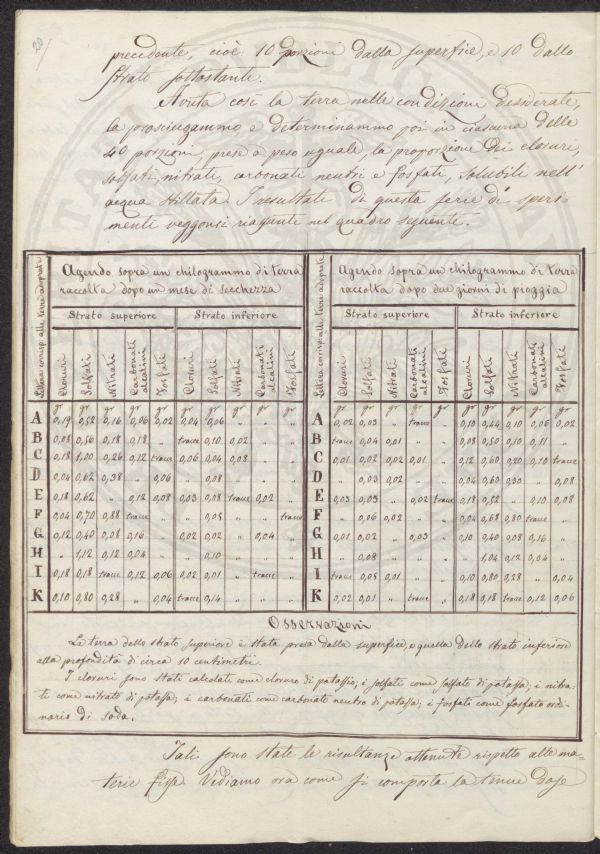 20/
precedente, cioè 10 porzioni dalla superfice, e 10 dallo
Strato sottostante.
Avuta così la terra nelle condizioni desiderate,
la prosciugammo e determinammo poi in ciascuna delle
40 porzioni, prese a peso uguale, la proporzione dei cloruri,
solfati, nitrati, carbonati neutri e fosfati, solubili nell'
acqua stillata. I resultati di questa serie di speri-
menti veggonsi riassunti nel quadro seguente.
Lettere corrisp. alle terre adoprate
Agendo sopra un chilogrammo di terra
raccolta dopo un mese di secchezza
Strato superiore Strato inferiore
Cloruri Solfati Nitrati Carbonati alcalini Fosfati Cloruri Solfati Nitrati Carbonati alcalini Fosfati
gr gr gr gr gr gr gr gr gr gr
A 0,19 0,52 0,16 0,06 0,02 0,04 0,06 " " "
B 0,08 0,56 0,18 0,18 " tracce 0,10 0,02 " "
C 0,18 1,00 0,26 0,12 tracce 0,06 0,04 0,08 " "
D 0,04 0,62 0,38 " 0,06 " 0,08 " " "
E 0,18 0,62 " 0,12 0,08 0,03 0,08 tracce 0,02 "
F 0,04 0,70 0,88 tracce " " 0,05 " " tracce
G 0,12 0,40 0,08 0,16 " 0,02 0,02 " 0,04 "
H " 1,12 0,12 0,04 " " 0,10 " " "
I 0,18 0,18 tracce 0,12 0,06 0,02 0,01 " tracce "
K 0,10 0,80 0,28 " 0,04 tracce 0,14 " " "
Lettere corrisp. alle terre adoprate
Agendo sopra un chilogrammo di terra
raccolta dopo due giorni di pioggia
Strato superiore Strato inferiore
Cloruri Solfati Nitrati Carbonati alcalini Fosfati Cloruri Solfati Nitrati Carbonati alcalini Fosfati
gr gr gr gr gr gr gr gr gr gr
A 0,02 0,03 " tracce " 0,10 0,44 0,10 0,06 0,02
B tracce 0,04 0,01 " " 0,08 0,50 0,10 0,11 "
C 0,01 0,02 0,02 0,01 " 0,12 0,60 0,20 0,10 tracce
D " 0,03 0,02 " " 0,04 0,60 0,30 " 0,08
E 0,03 0,03 " 0,02 tracce 0,18 0,52 " 0,10 0,08
F " 0,06 0,02 " " 0,04 0,68 0,80 tracce "
G 0,01 0,02 " 0,03 " 0,10 0,40 0,08 0,16 "
H " 0,08 " " " " 1,04 0,12 0,04 "
I tracce 0,05 0,01 " " 0,10 0,80 0,28 " 0,04
K 0,02 0,01 " tracce " 0,18 0,18 tracce 0,12 0,06
Osservazioni
La terra dello strato superiore è stata presa dalla superfice, e quella dello strato inferiore
alla profondità di circa 10 centimetri.
I cloruri sono stati calcolati come cloruro di potassio; i solfati come solfato di potassa; i nitra-
ti come nitrato di potassa; i carbonati come carbonato neutro di potassa; i fosfati come fosfato ordi-
nario di soda.
Tali sono state le risultanze ottenute rispetto alle ma-
terie fisse. Vediamo ora come si comporta la tenue dose